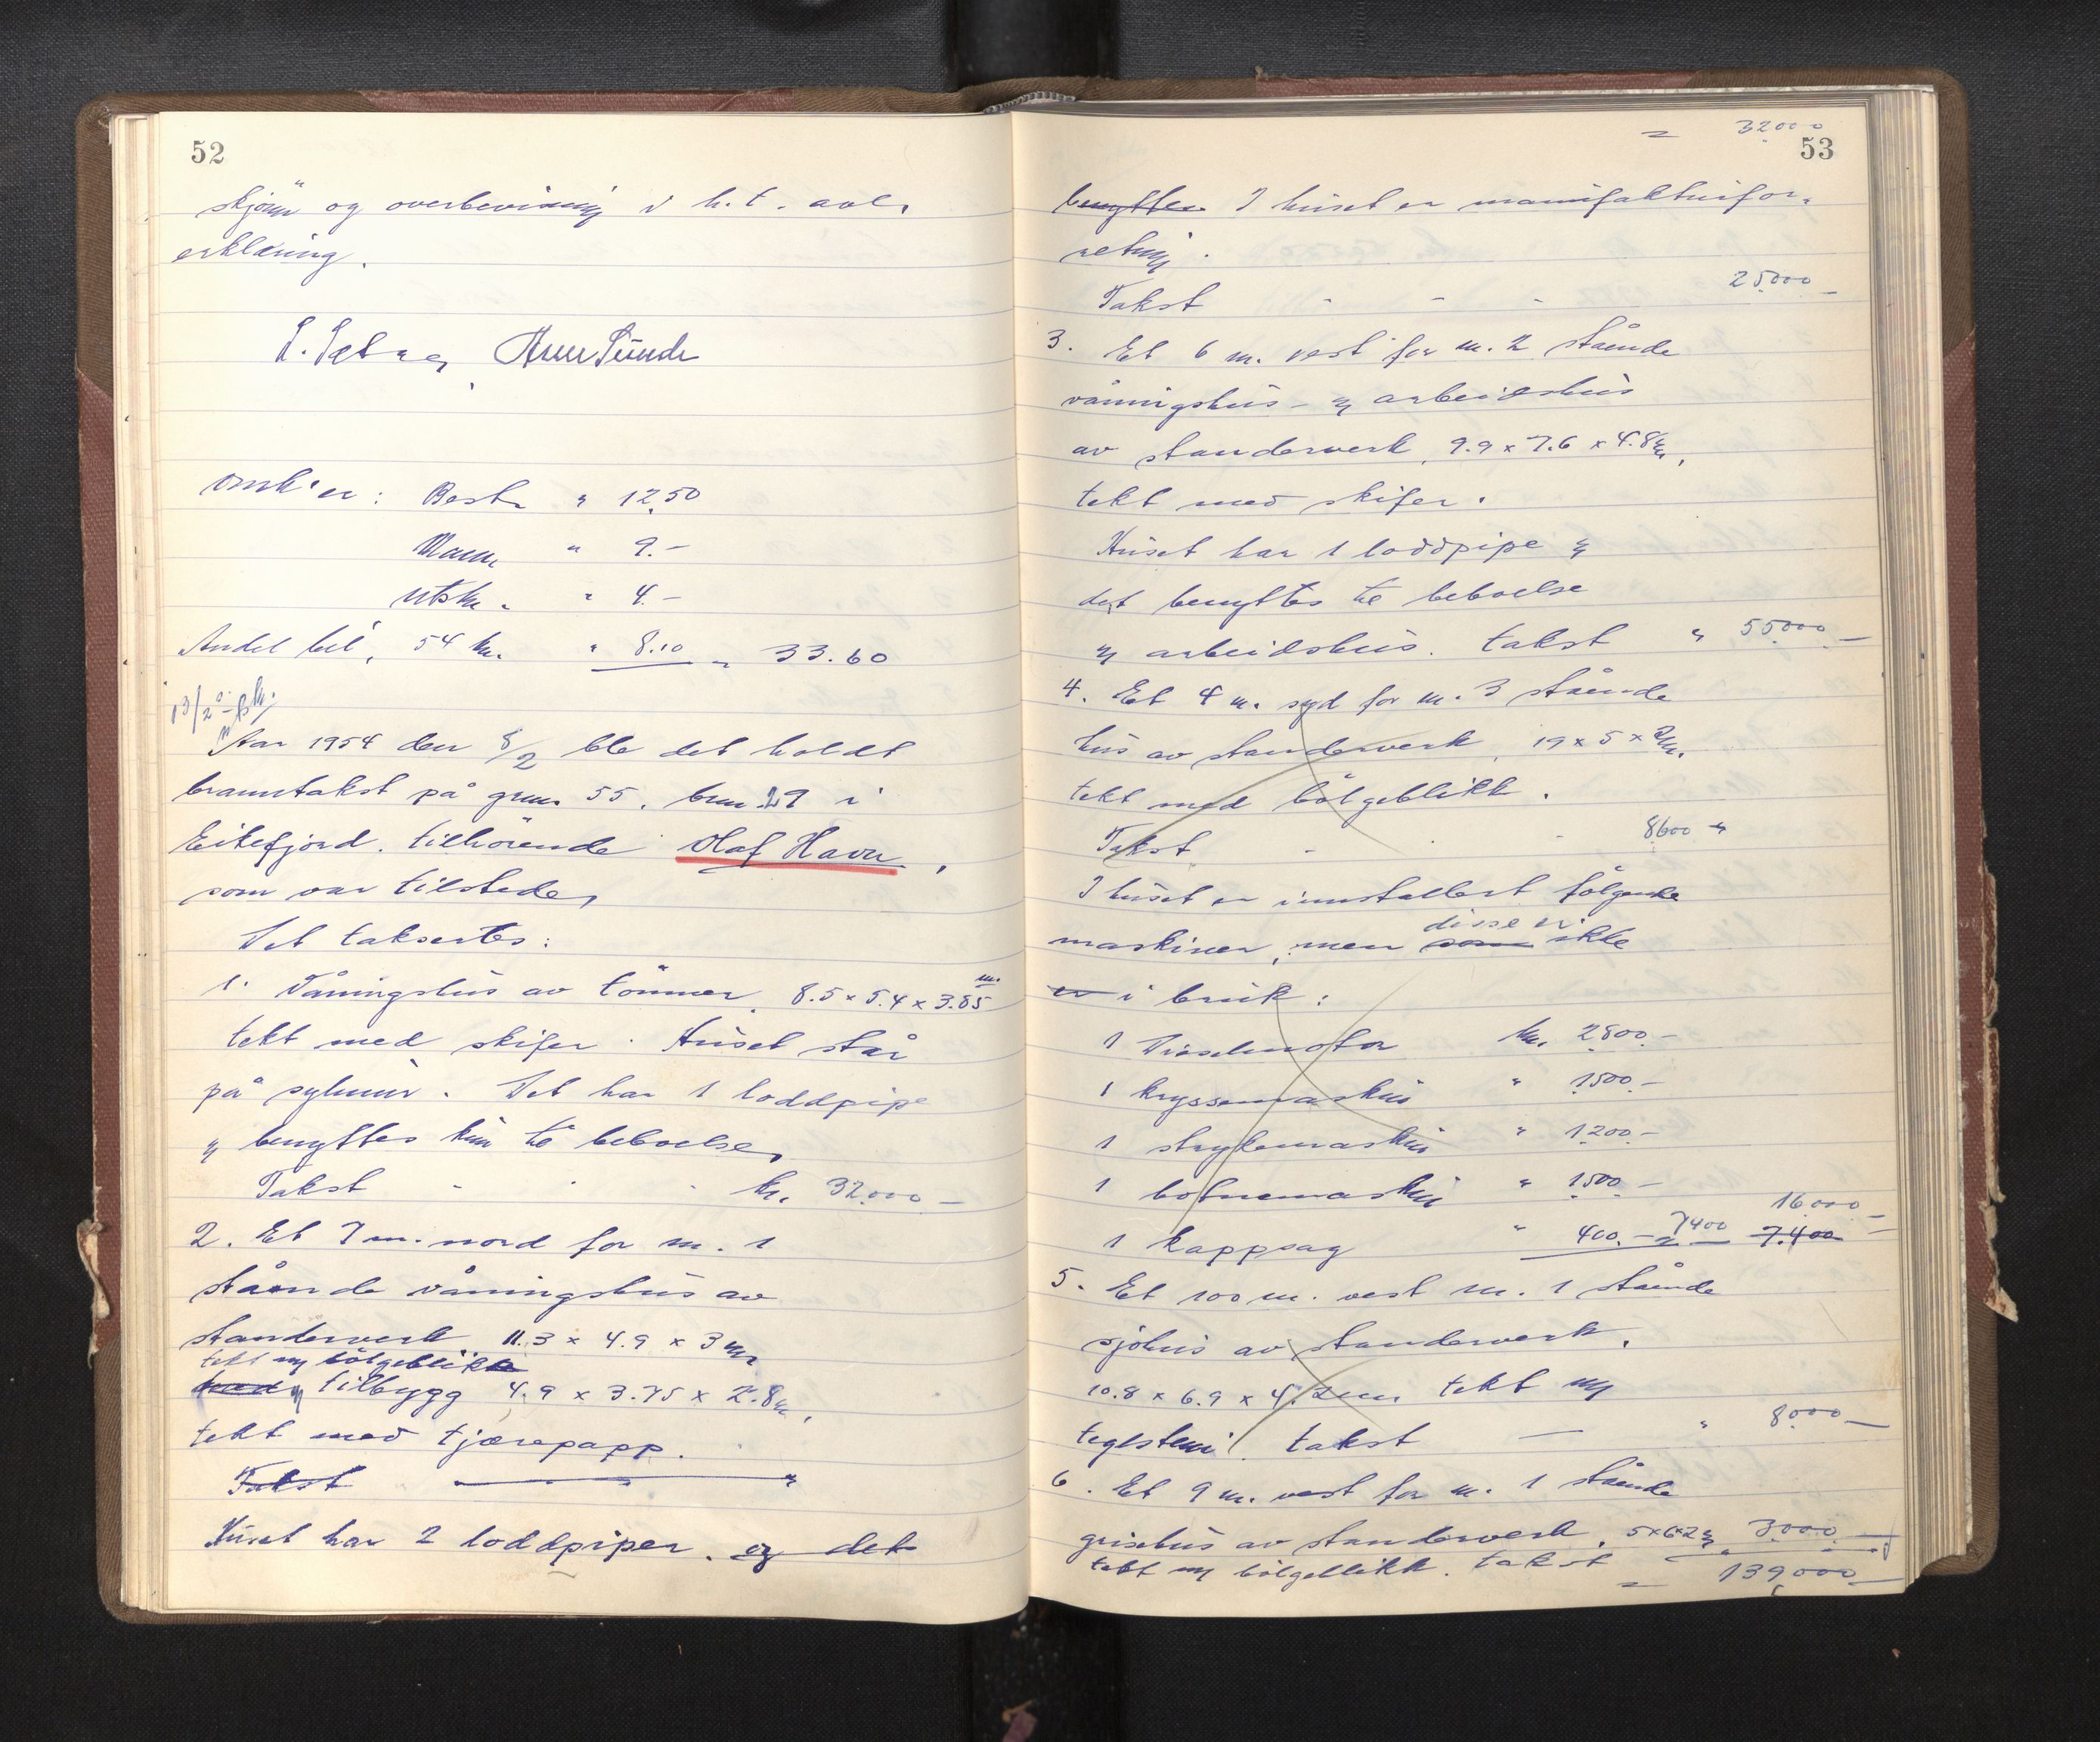 52
skjønn og overbevisning i h.t. avl.
erklæring.
L. Sætre,
omk'er: Best. " 12.50
Mann " 9.-
utskr. " 4.-
Andel bil, 54 km. " 8.10 = 33.60
13/2
Aar 1954 den 8/2 ble det holdt
branntakst på grnr. 55, brnr. 29 i
Eikefjord, tilhørende Olaf Havn,
som var tilstede,
Det taksertes:
1. Våningshus av tømmer, 8.5 x 5.4 x 3.85 m.
tekt med skifer. Huset står
på sylmur. Det har 1 loddpipe
og benyttes kun til beboelse,
Takst - - - kr. 32000 -
2. Et 7 m. nord for m. 1
stående våningshus av
standerverk 11.3 x 4.9 x 3 m
tekt m bølgeblikk
med og tilbygg 4.9 x 3.75 x 2.8 m,
tekt med tjærepapp.
Takst "
Huset har 2 loddpiper. og det
= 32000
53
benyttes I huset er manufakturfor-
retning.
Takst - - - 25000 -
3. Et 6 m. vest for m. 2 stående
våningshus- og arbeidshus
av standerverk, 9.9 x 7.6 x 4.8 m,
tekt med skifer.
Huset har 1 loddpipe og
det benyttes til beboelse
og arbeidshus. takst " 55000 -
4. Et 4 m. syd for m. 3 stående
hus av standerverk, 19 x 5 x 3 m.
tekt med bølgeblikk.
Takst - - 8600 "
I huset er innstallert følgende
disse er
maskiner, men som ikke
er i bruk:
1 Dieselmotor kr. 2800.-
1 kryssemaskin " 1500.-
1 strykemaskin " 1200.-
1 botnemaskin " 1500.-
16000 -
1 kappsag " 400.- = 7400 7.400
5. Et 100 m. vest m. 1 stående
sjøhus av standerverk,
10.8 x 6.9 x 4.2 m. tekt m
teglstein. takst - " 8000 -
6. Et 9 m. vest for m. 1 stående
grisehus av standerverk, 5x6x2 m " 3000 -
tekt m bølgeblikk. takst = 139000 -